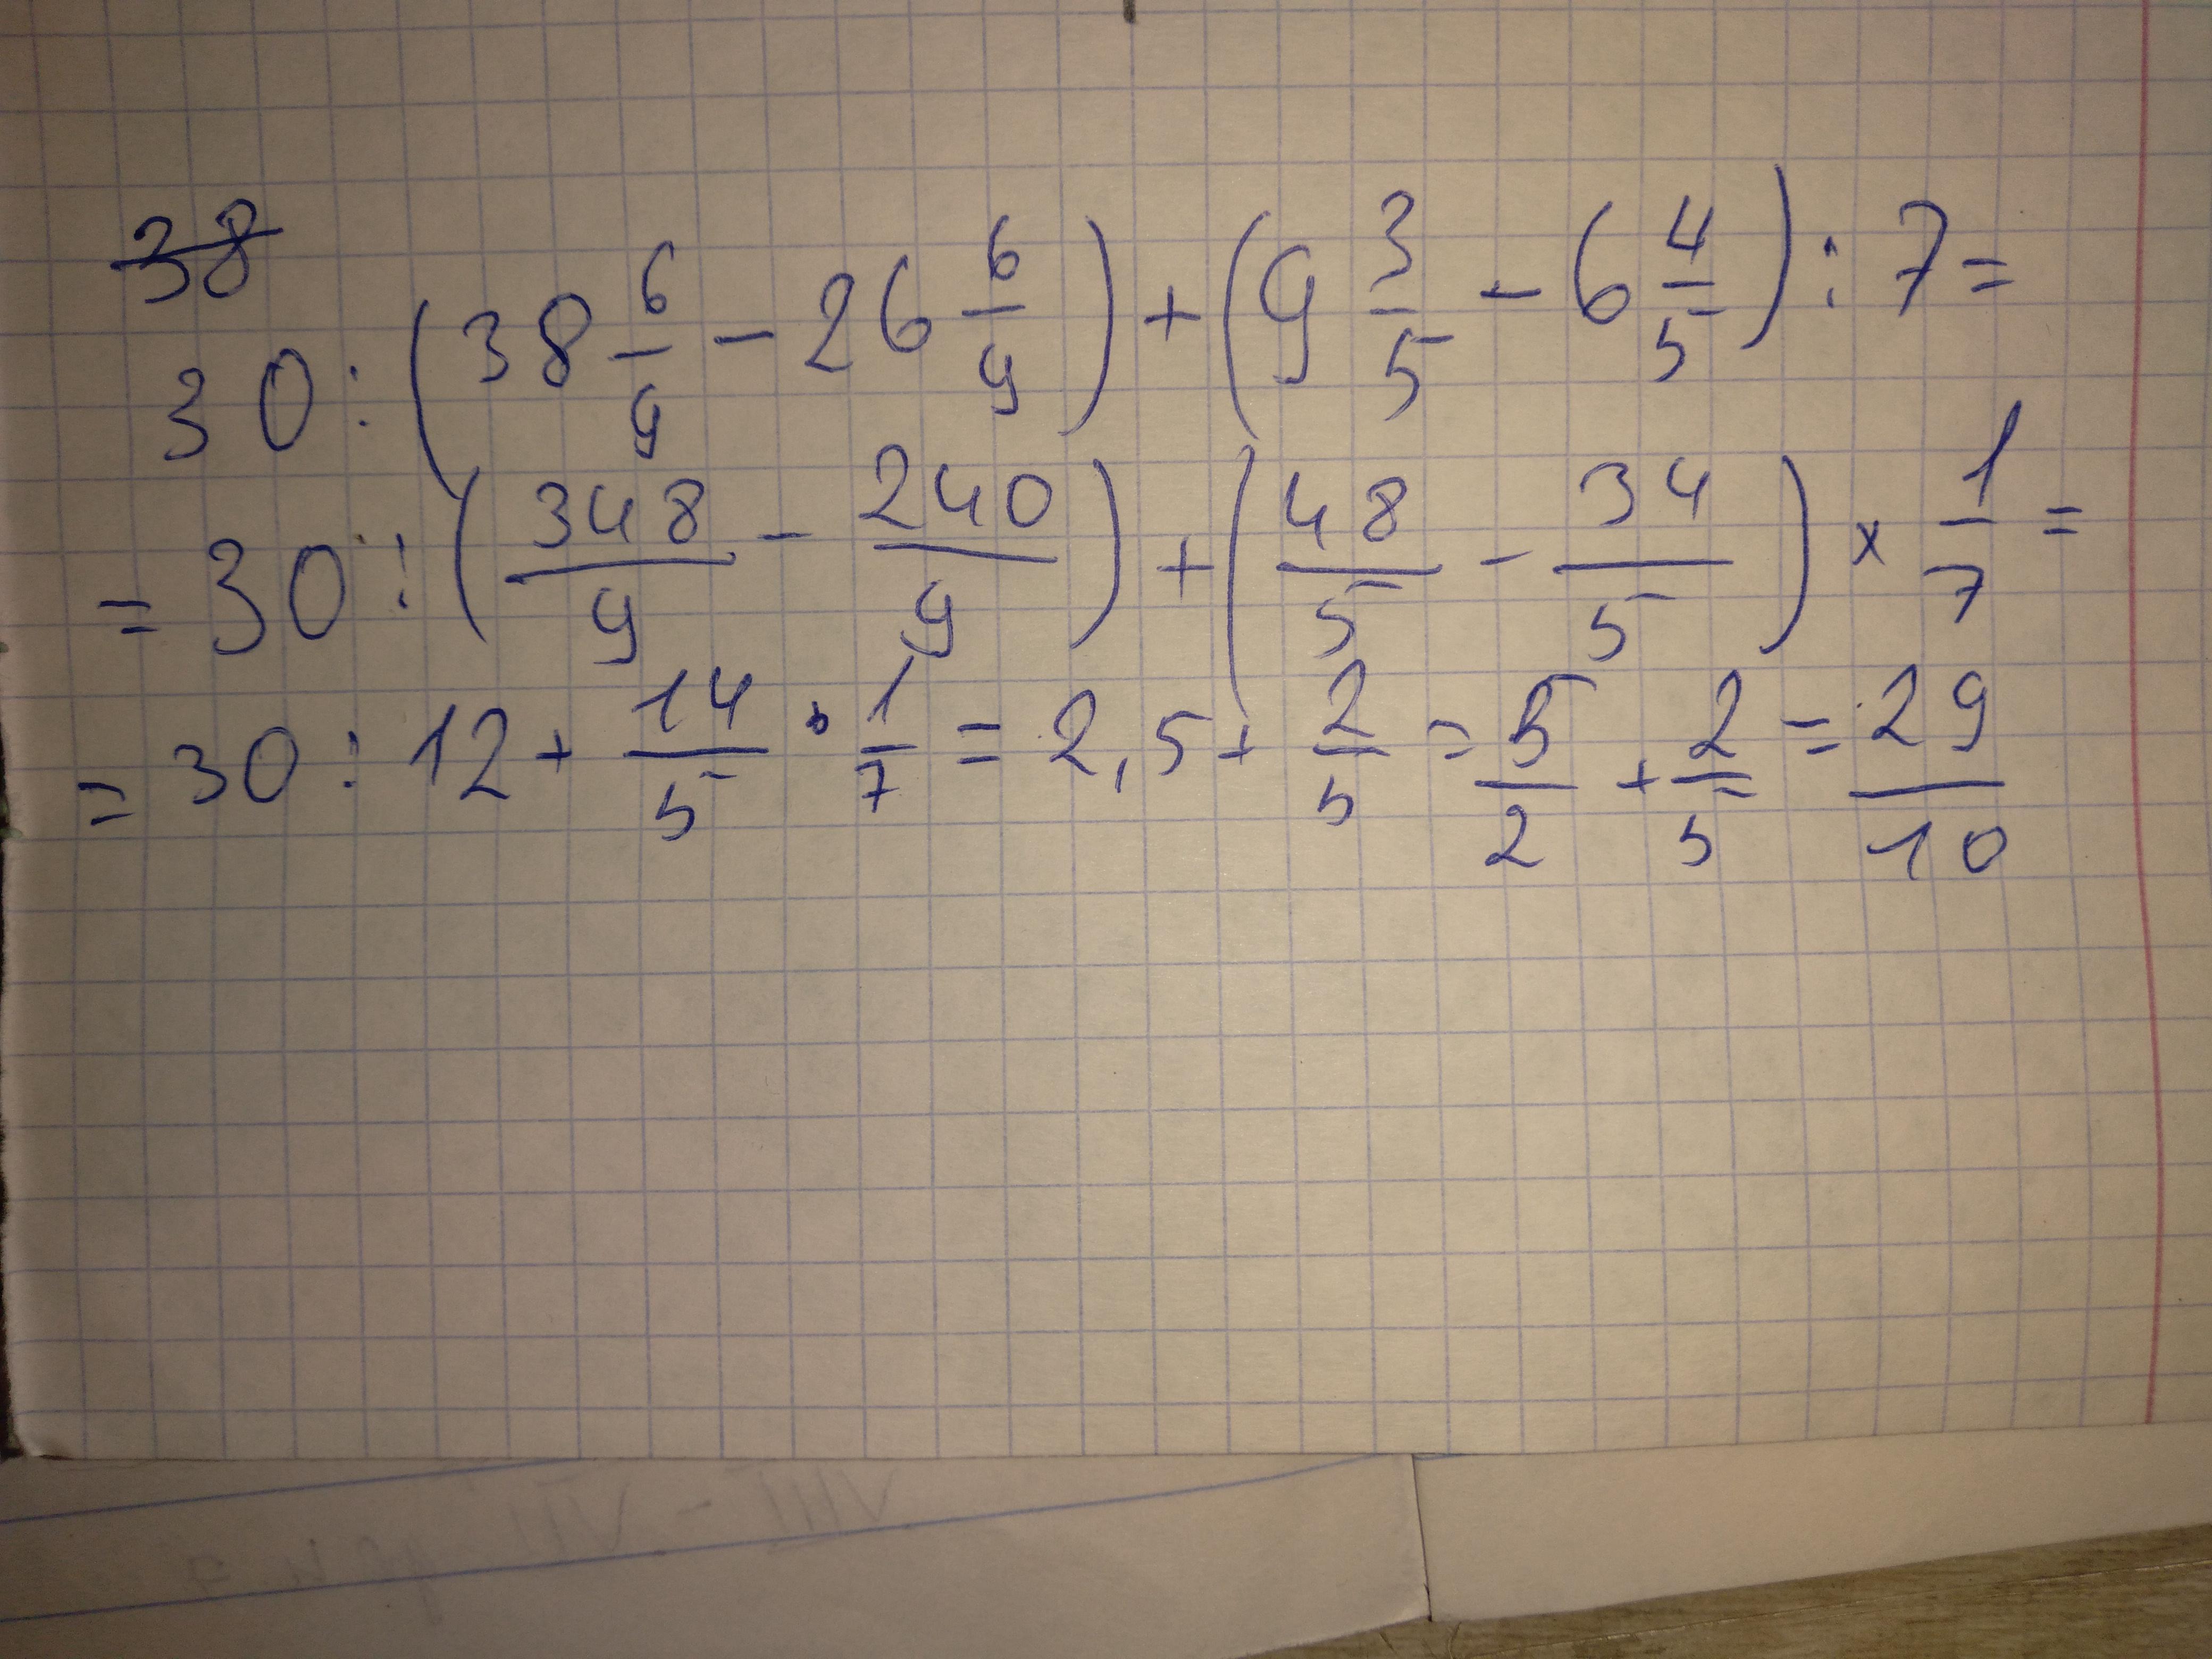 38
30 : (38 6/9 - 26 6/9) + (9 3/5 - 6 4/5) : 7 =
= 30 : (348/9 - 240/9) + (48/5 - 34/5) × 1/7 =
= 30 : 12 + 14/5 · 1/7 = 2,5 + 2/5 = 5/2 + 2/5 = 29/10
VIII - VII